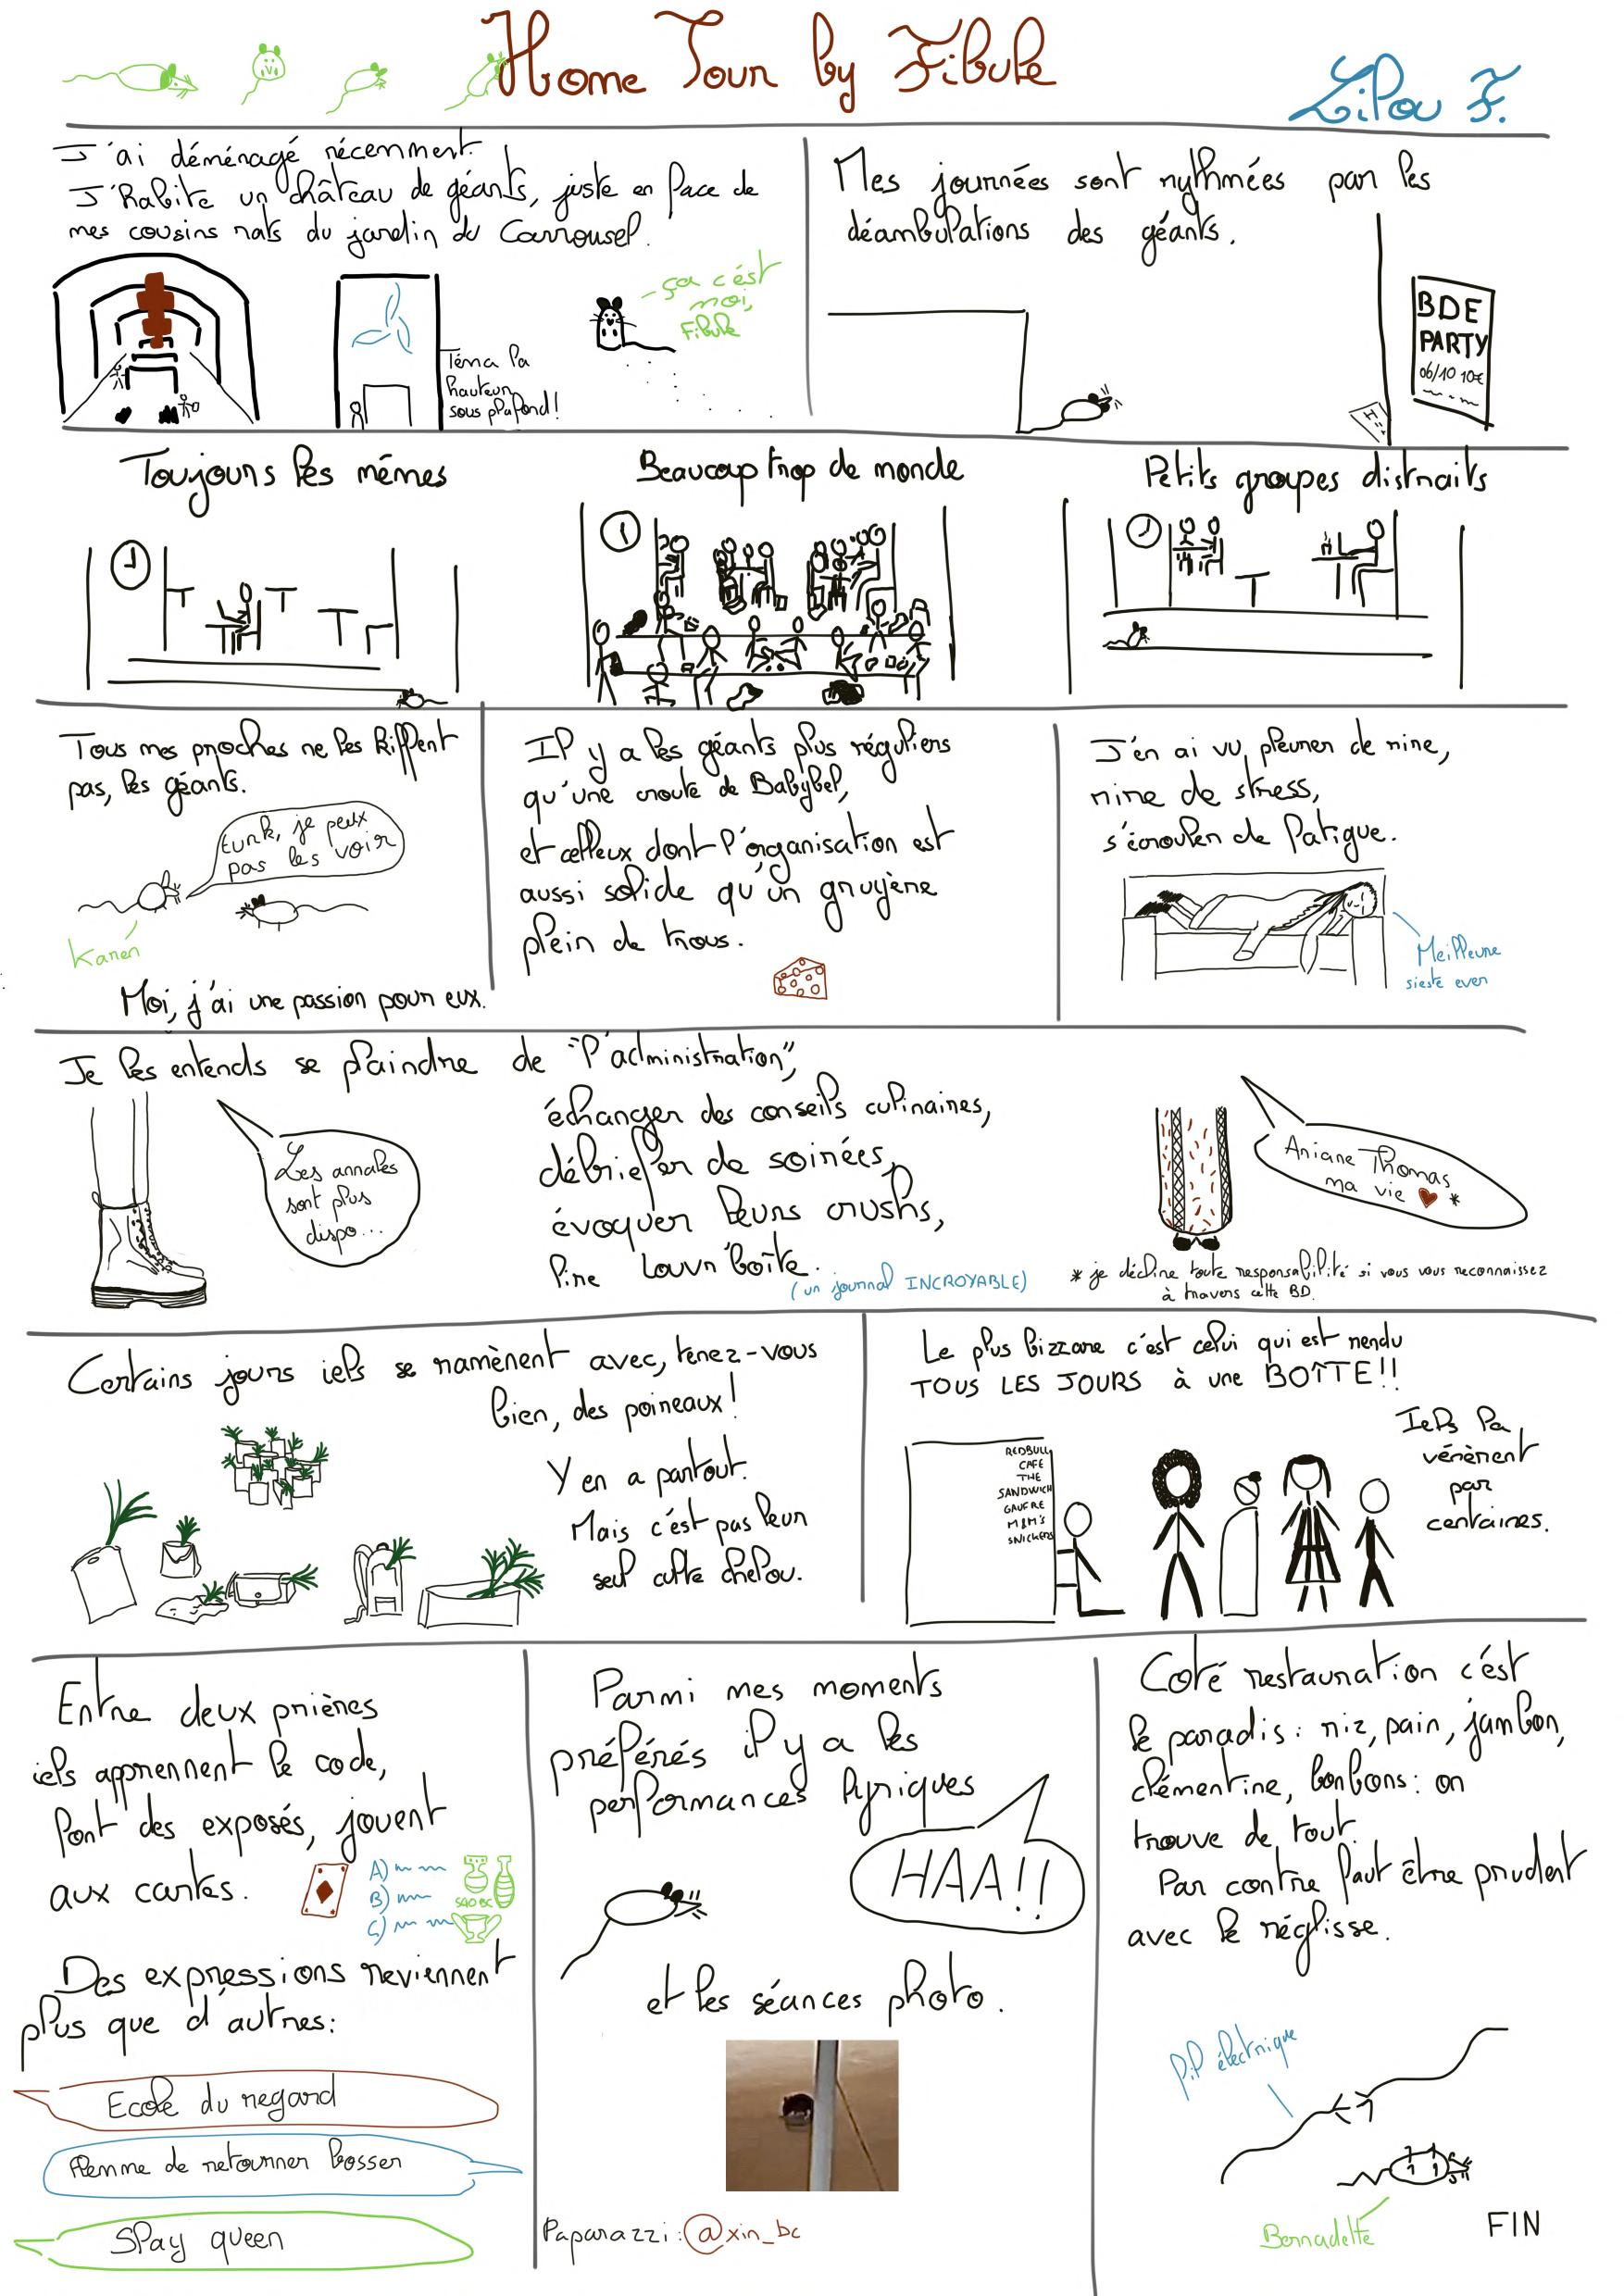 Home Tour by Fibule
Lilou F.
J'ai déménagé récemment.
J'habite un château de géants, juste en face de
mes cousins rats du jardin du Carrousel.
Téma la
hauteur
sous plafond!
- ça c'est
moi,
Fibule
Mes journées sont rythmées par les
déambulations des géants.
BDE
PARTY
06/10 10€
Toujours les mêmes
Beaucoup trop de monde
Petits groupes distraits
Tous mes proches ne les kiffent
pas, les géants.
Eurk, je peux
pas les voir
Karen
Moi, j'ai une passion pour eux.
Il y a les géants plus réguliers
qu'une croute de Babybel,
et celleux dont l'organisation est
aussi solide qu'un gruyère
plein de trous.
J'en ai vu pleurer de rire,
rire de stress,
s'écrouler de fatigue.
Meilleure
sieste ever
Je les entends se plaindre de "l'administration",
Les annales
sont plus
dispo...
échanger des conseils culinaires,
débriefer de soirées,
évoquer leurs crushs,
lire Louvr'boîte.
(un journal INCROYABLE)
Ariane Thomas
ma vie ♥ *
* je décline toute responsabilité si vous vous reconnaissez
à travers cette BD.
Certains jours iels se ramènent avec, tenez-vous
bien, des poireaux!
Y en a partout.
Mais c'est pas leur
seul culte chelou.
Le plus bizzare c'est celui qui est rendu
TOUS LES JOURS à une BOÎTE!!
REDBULL
CAFE
THE
SANDWICH
GAUFRE
M&M's
SNICKERS
Iels la
vénèrent
par
centaines.
Entre deux prières
iels apprennent le code,
font des exposés, jouent
aux cartes.
A)
B)
C)
540 BC
Des expressions reviennent
plus que d'autres:
Ecole du regard
flemme de retourner bosser
Slay queen
Parmi mes moments
préférés il y a les
performances lyriques
HAA!!
et les séances photo.
Paparazzi: @xin_bc
Coté restauration c'est
le paradis: riz, pain, jambon,
clémentine, bonbons: on
trouve de tout.
Par contre faut être prudent
avec le réglisse.
fil électrique
Bernadette
FIN